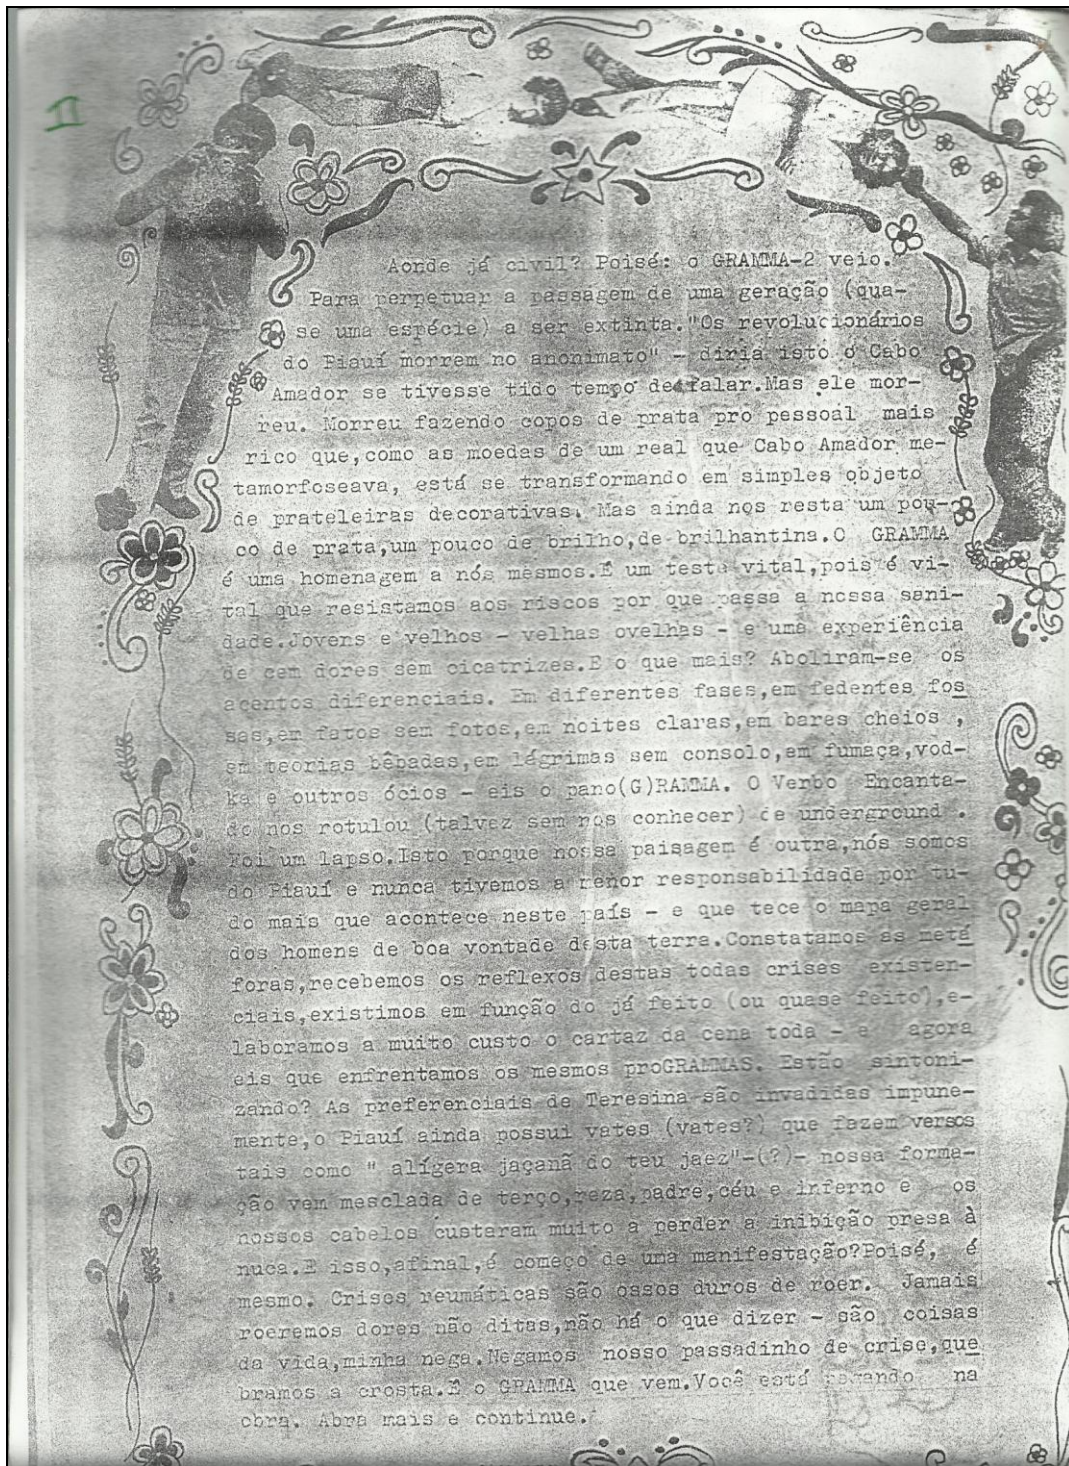 II
Aonde já civil? Poisé: o GRAMMA-2 veio.
Para perpetuar a passagem de uma geração (qua-
se uma espécie) a ser extinta."Os revolucionários
do Piauí morrem no anonimato" - diria isto o Cabo
Amador se tivesse tido tempo de falar.Mas ele mor-
reu. Morreu fazendo copos de prata pro pessoal mais
rico que,como as moedas de um real que Cabo Amador me-
tamorfoseava, está se transformando em simples objeto
de prateleiras decorativas. Mas ainda nos resta um pou-
co de prata,um pouco de brilho,de brilhantina.O GRAMMA
é uma homenagem a nós mesmos.É um teste vital,pois é vi-
tal que resistamos aos riscos por que passa a nossa sani-
dade.Jovens e velhos - velhas ovelhas - e uma experiência
de cem dores sem cicatrizes.E o que mais? Aboliram-se os
acentos diferenciais. Em diferentes fases,em fedentes fos
sas,em fatos sem fotos,em noites claras,em bares cheios ,
em teorias bêbadas,em lágrimas sem consolo,em fumaça,vod-
ka e outros ócios - eis o pano(G)RAMMA. O Verbo Encanta-
do nos rotulou (talvez sem nos conhecer) de underground .
Foi um lapso.Isto porque nossa paisagem é outra,nós somos
do Piauí e nunca tivemos a menor responsabilidade por tu-
do mais que acontece neste país - e que tece o mapa geral
dos homens de boa vontade desta terra.Constatamos as metá
foras,recebemos os reflexos destas todas crises existen-
ciais,existimos em função do já feito (ou quase feito),e-
laboramos a muito custo o cartaz da cena toda - e agora
eis que enfrentamos os mesmos proGRAMMAS. Estão sintoni-
zando? As preferenciais de Teresina são invadidas impune-
mente,o Piauí ainda possui vates (vates?) que fazem versos
tais como " alígera jaçanã do teu jaez"-(?)- nossa forma-
ção vem mesclada de terço,reza,padre,céu e inferno e os
nossos cabelos custaram muito a perder a inibição presa à
nuca.E isso,afinal,é começo de uma manifestação?Poisé, é
mesmo. Crises reumáticas são ossos duros de roer. Jamais
roeremos dores não ditas,não há o que dizer - são coisas
da vida,minha nega.Negamos nosso passadinho de crise,que
bramos a crosta.É o GRAMMA que vem.Você está na
obra. Abra mais e continue.